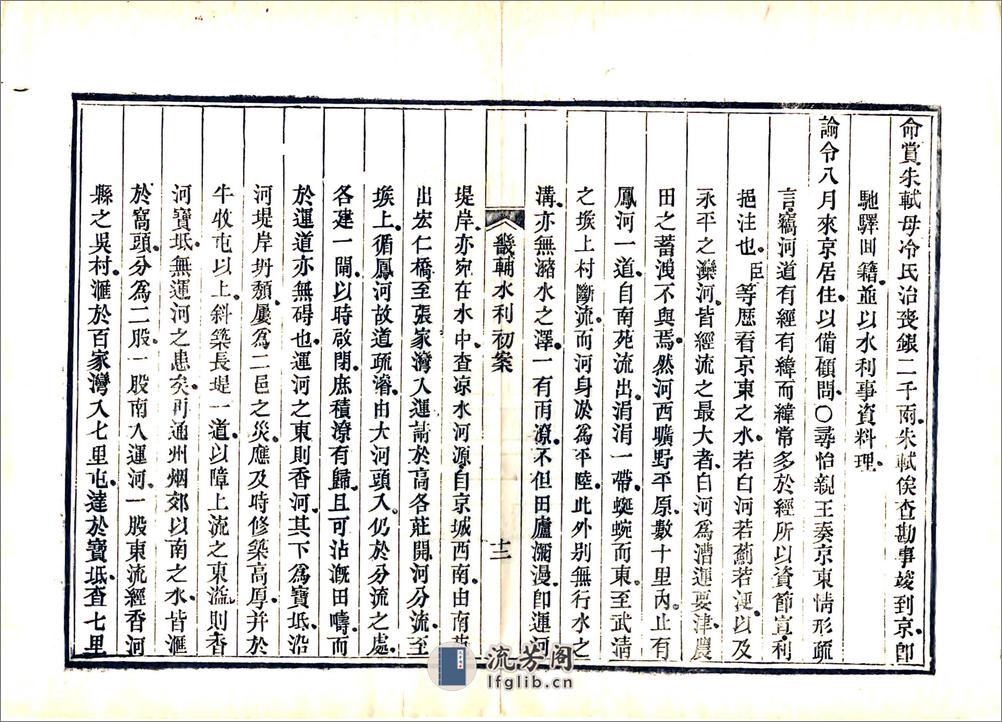 命賞朱軾母冷氏治喪銀二千兩朱軾俟查勘事竣到京即
馳驛回籍並以水利事資料理
諭令八月來京居住以備顧問〇尋怡親王奏京東情形疏
言竊河道有經有緯而緯常多於經所以資節宣利
挹注也臣等歷看京東之水若白河若薊若浭以及
永平之灤河皆經流之最大者白河為漕運要津農
田之蓄洩不與焉然河西曠野平原數十里內止有
鳳河一道自南苑流出涓涓一帶蜿蜒而東至武清
之堠上村斷流而河身淤為平陸此外別無行水之
溝亦無瀦水之澤一有雨潦不但田廬瀰漫即運河
畿輔水利初案
十二
堤岸亦宛在水中查凉水河源自京城西南由南苑
出宏仁橋至張家灣入運請於高各莊開河分流至
堠上循鳳河故道疏濬由大河頭入仍於分流之處
各建一閘以時啟閉庶積潦有歸且可沾漑田疇而
於運道亦無碍也運河之東則香河其下為寶坻沿
河堤岸坍頹屢為二邑之災應及時修築高厚并於
牛牧屯以上斜築長堤一道以障上流之東溢則香
河寶坻無運河之患矣再通州烟郊以南之水皆滙
於窩頭分為二股一股南入運河一股東流經香河
縣之吳村滙於百家灣入七里屯達於寶坻查七里
流芳阁
lfglib.cn